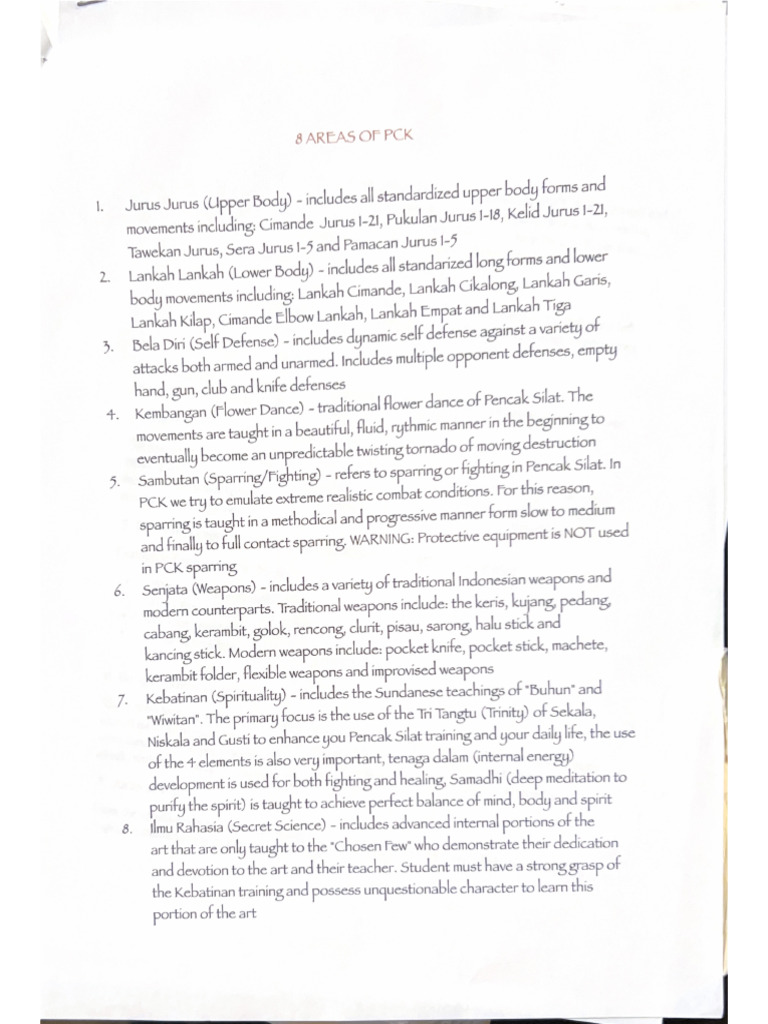 8 AREAS OF PCK
1. Jurus Jurus (Upper Body) - includes all standardized upper body forms and
movements including: Cimande Jurus 1-21, Pukulan Jurus 1-18, Kelid Jurus 1-21,
Tawekan Jurus, Sera Jurus 1-5 and Pamacan Jurus 1-5
2. Lankah Lankah (Lower Body) - includes all standarized long forms and lower
body movements including: Lankah Cimande, Lankah Cikalong, Lankah Garis,
Lankah Kilap, Cimande Elbow Lankah, Lankah Empat and Lankah Tiga
3. Bela Diri (Self Defense) - includes dynamic self defense against a variety of
attacks both armed and unarmed. Includes multiple opponent defenses, empty
hand, gun, club and knife defenses
4. Kembangan (Flower Dance) - traditional flower dance of Pencak Silat. The
movements are taught in a beautiful, fluid, rythmic manner in the beginning to
eventually become an unpredictable twisting tornado of moving destruction
5. Sambutan (Sparring/Fighting) - refers to sparring or fighting in Pencak Silat. In
PCK we try to emulate extreme realistic combat conditions. For this reason,
sparring is taught in a methodical and progressive manner form slow to medium
and finally to full contact sparring. WARNING: Protective equipment is NOT used
in PCK sparring
6. Senjata (Weapons) - includes a variety of traditional Indonesian weapons and
modern counterparts. Traditional weapons include: the keris, kujang, pedang,
cabang, kerambit, golok, rencong, clurit, pisau, sarong, halu stick and
kancing stick. Modern weapons include: pocket knife, pocket stick, machete,
kerambit folder, flexible weapons and improvised weapons
7. Kebatinan (Spirituality) - includes the Sundanese teachings of "Buhun" and
"Wiwitan". The primary focus is the use of the Tri Tangtu (Trinity) of Sekala,
Niskala and Gusti to enhance you Pencak Silat training and your daily life, the use
of the 4 elements is also very important, tenaga dalam (internal energy)
development is used for both fighting and healing, Samadhi (deep meditation to
purify the spirit) is taught to achieve perfect balance of mind, body and spirit
8. Ilmu Rahasia (Secret Science) - includes advanced internal portions of the
art that are only taught to the "Chosen Few" who demonstrate their dedication
and devotion to the art and their teacher. Student must have a strong grasp of
the Kebatinan training and possess unquestionable character to learn this
portion of the art